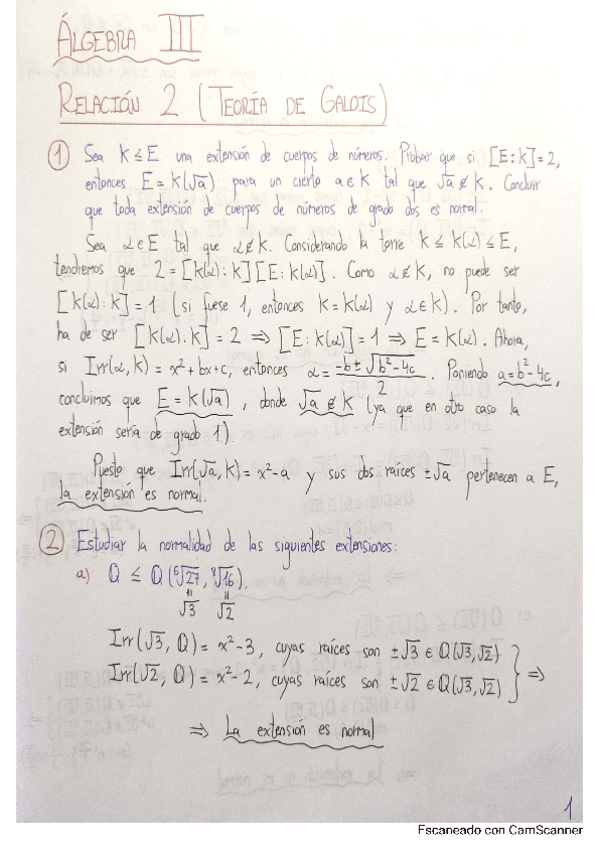 ÁLGEBRA III
RELACIÓN 2 (TEORÍA DE GALOIS)
① Sea K ≤ E una extensión de cuerpos de números. Probar que si [E:K]=2,
entonces E = K(√a) para un cierto a∈K tal que √a ∉ K. Concluir
que toda extensión de cuerpos de números de grado dos es normal.
Sea α∈E tal que α∉K. Considerando la torre K ≤ K(α) ≤ E,
tendremos que 2 = [K(α):K][E:K(α)]. Como α∉K, no puede ser
[K(α):K] = 1 (si fuese 1, entonces K = K(α) y α∈K). Por tanto,
ha de ser [K(α):K] = 2 ⇒ [E:K(α)] = 1 ⇒ E = K(α). Ahora,
si Irr(α,K) = x²+bx+c, entonces α = (-b ± √(b²-4c))/2. Poniendo a = b²-4c,
concluimos que E = K(√a), donde √a ∉ K (ya que en otro caso la
extensión sería de grado 1).
Puesto que Irr(√a,K) = x²-a y sus dos raíces ±√a pertenecen a E,
la extensión es normal.
② Estudiar la normalidad de las siguientes extensiones:
a) Q ≤ Q(⁶√27, ⁸√16).
= =
√3 √2
Irr(√3, Q) = x²-3, cuyas raíces son ±√3 ∈ Q(√3,√2)
Irr(√2, Q) = x²-2, cuyas raíces son ±√2 ∈ Q(√3,√2) } ⇒
⇒ La extensión es normal
1
Escaneado con CamScanner